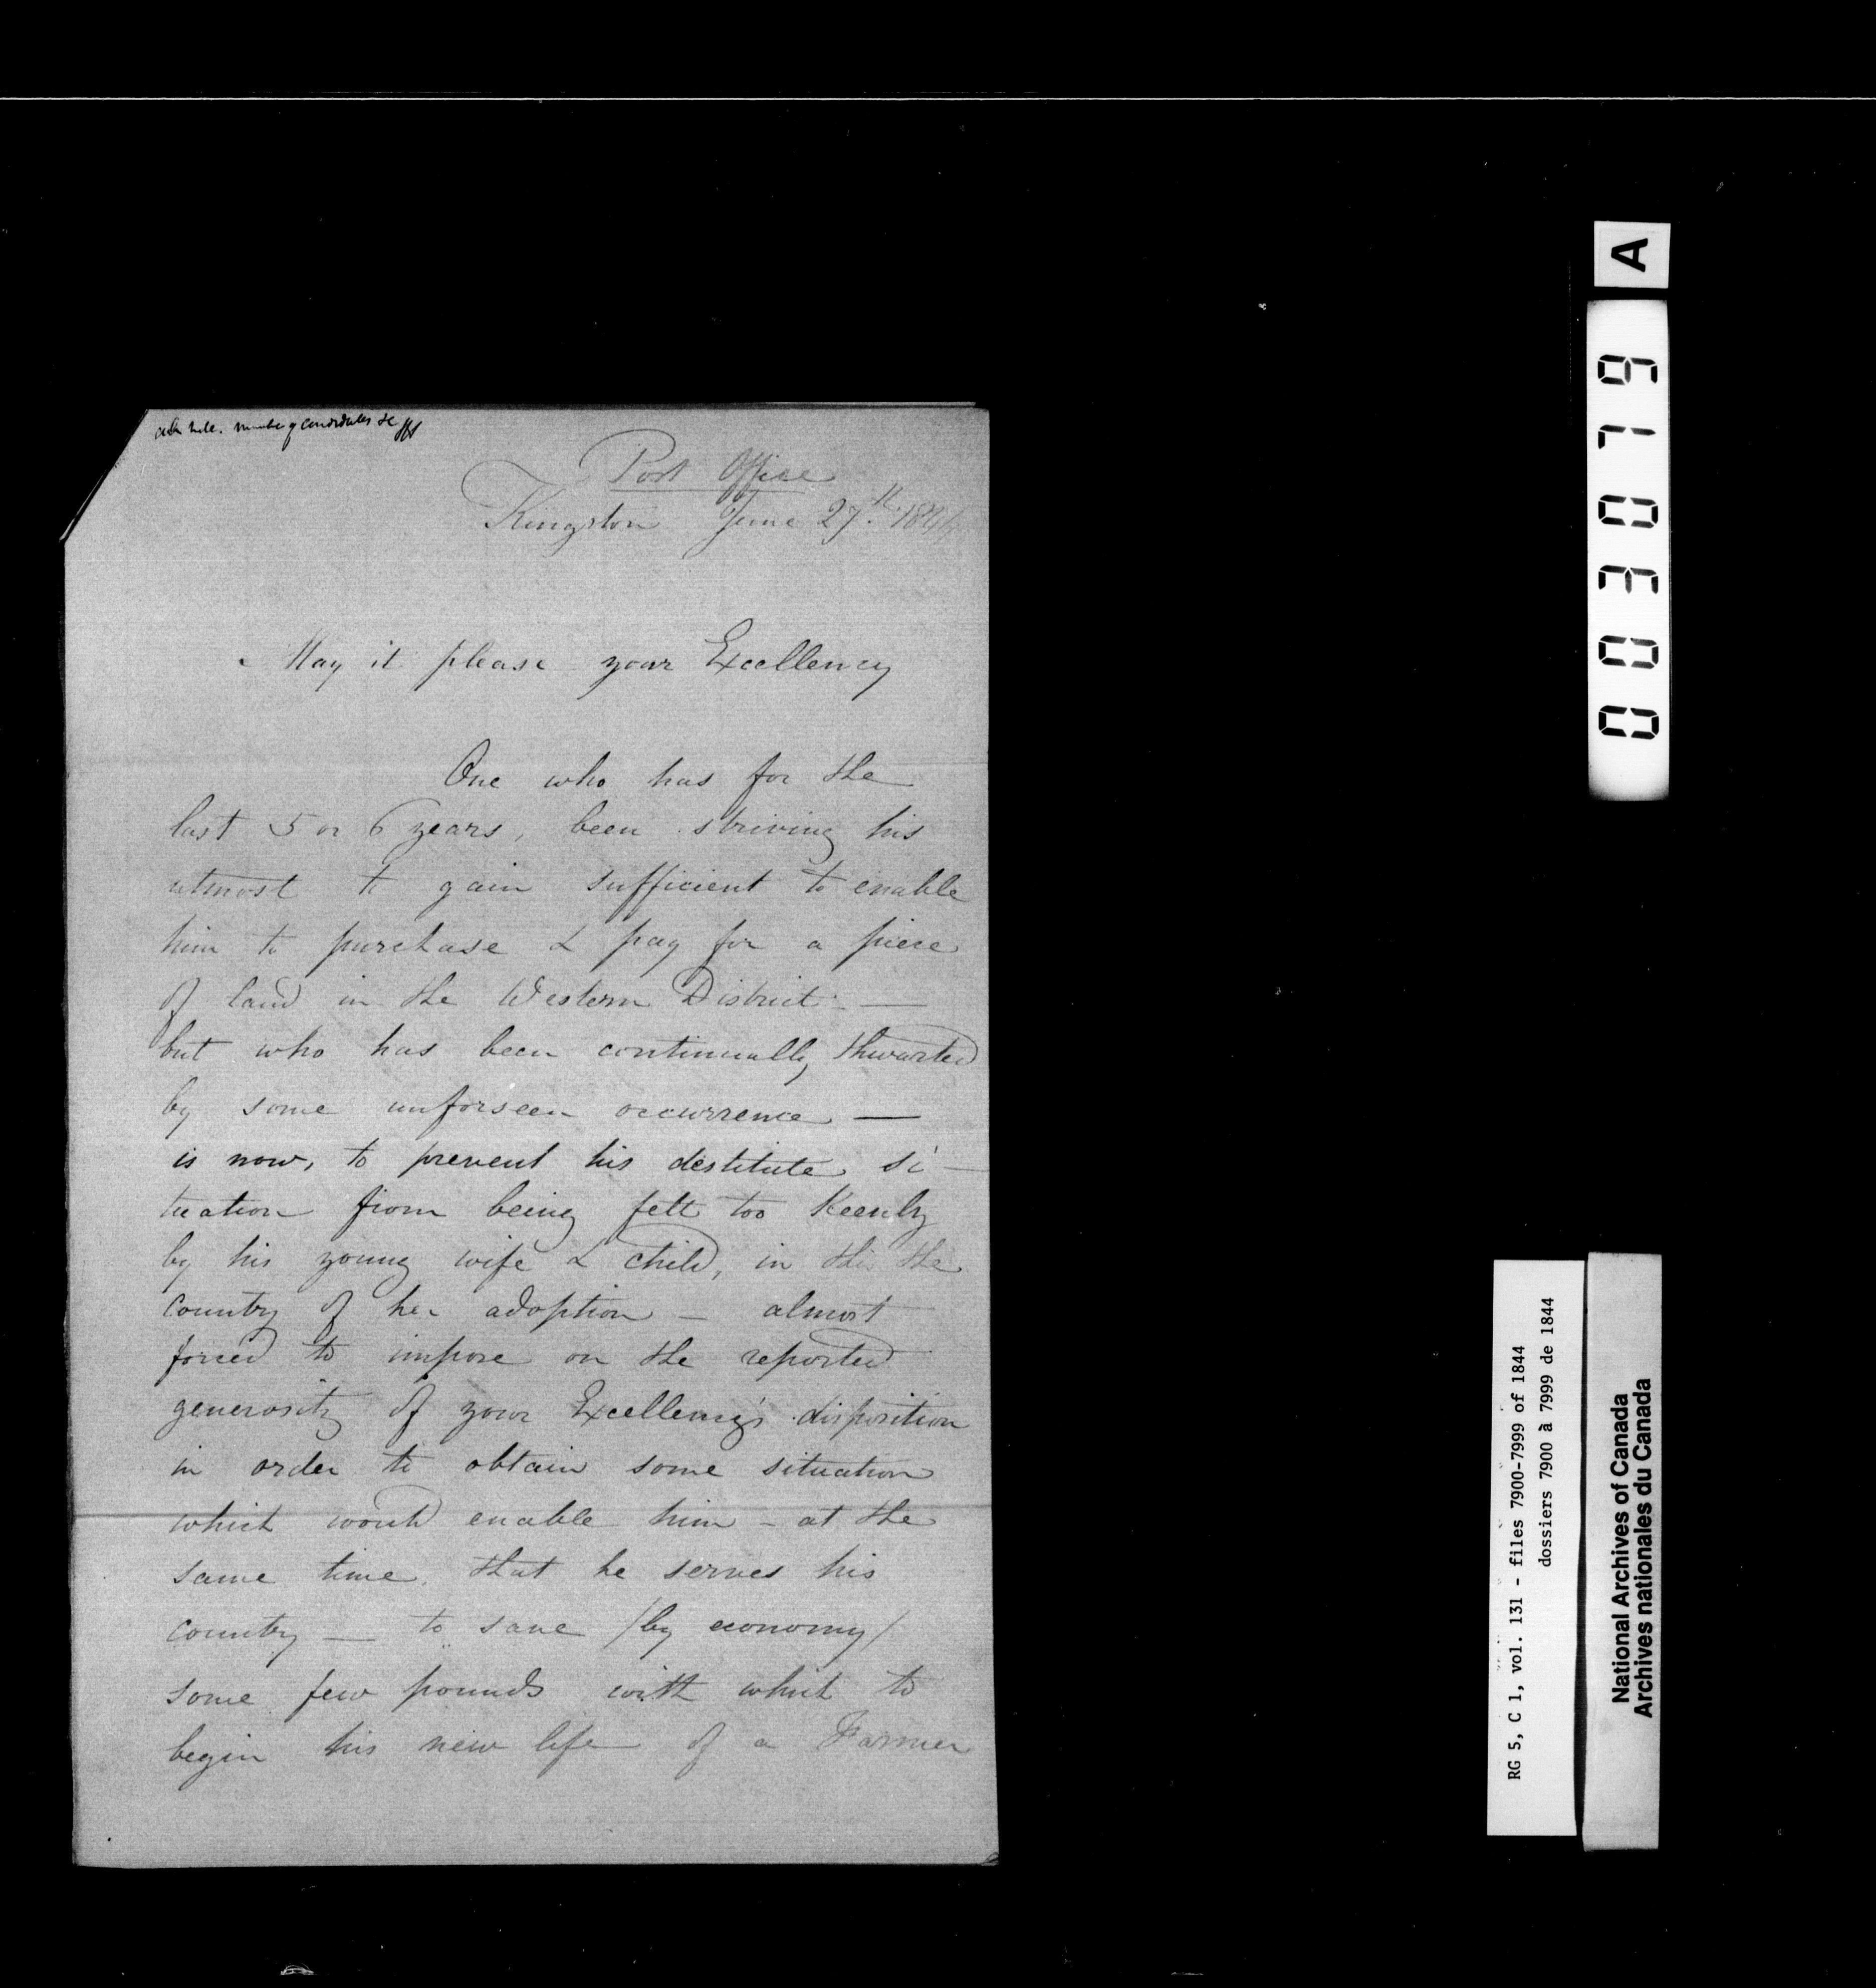 number of candidates &c
Post Office
Kingston June 27th 1844
May it please your Excellency
One who has for the
last 5 or 6 years, been striving his
utmost to gain sufficient to enable
him to purchase & pay for a piece
of land in the Western District —
but who has been continually thwarted
by some unforseen occurrence —
is now, to prevent his destitute si-
tuation from being felt too Keenly
by his young wife & child, in this the
Country of her adoption — almost
forced to impose on the reported
generosity of your Excellency's disposition
in order to obtain some situation
which would enable him - at the
same time, that he serves his
Country — to save /by economy/
some few pounds with which to
begin his new life of a Farmer
A
003079
RG 5, C 1, vol. 131 - files 7900-7999 of 1844
dossiers 7900 à 7999 de 1844
National Archives of Canada
Archives nationales du Canada